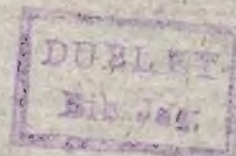 DUBLET
Bib. Jag.